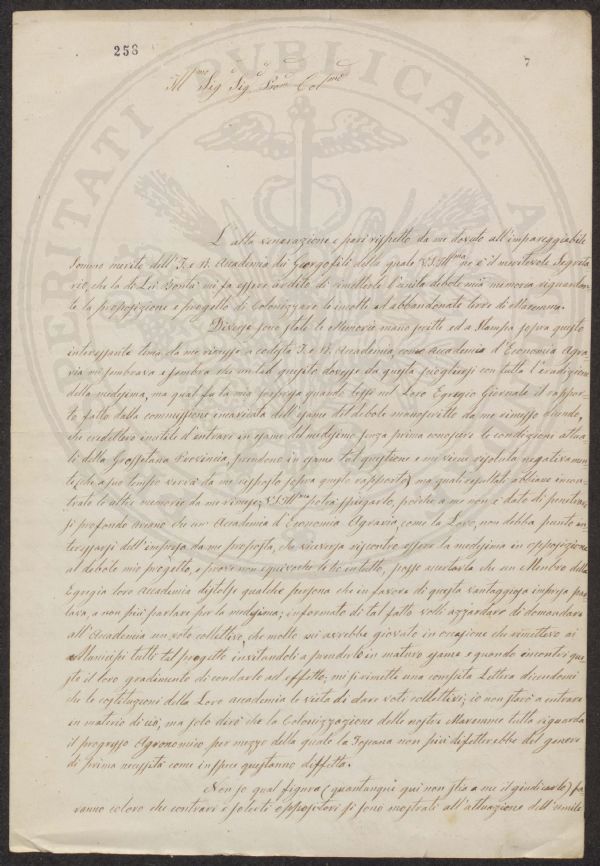 258
7
Ill.mo Sig. Sig. Pron Col.mo
L'alta venerazione e pari rispetto da me dovuto all'impareggiabile
Sommo merito dell'I. e R. Accademia dei Georgofili della quale V.S. Ill.ma ne è il meritevole Segreta
rio, che la di Lei Bontà mi fa essere ardito di rimetterle l'unita debole mia memoria riguardan
te la proposizione e progetto di Colonizzare le incolte ed abbandonate terre di Maremma.
Diverse sono state le Memorie mano scritte ed a Stampa sopra questo
interessante tema da me rimesse a codesta I. e R. Accademia, come Accademia d'Economia Agra
ria mi sembrava e sembra che un tal quesito dovesse da questa sciogliersi con tutta l'eradizione
della medesima, ma qual fu la mia sorpresa quando lessi nel Loro Egregio Giornale il rappor
to fatto dalla commissione incaricata dell'esame del debole manoscritto da me rimesso
che credettero inutile d'entrare in esame del medesimo senza prima conoscere le condizioni attua
li della Grossetana Provincia, prendono in esame tal questione e mi viene risoluta negativamen
te (che a suo tempo verrà da me risposto sopra questo rapporto) ma quali resultati abbiano incon
trato le altre memorie da me rimesse, V.S. Ill.ma potrà spiegarlo, poiché a me non è dato di penetrare
sì profondo arcano che un'Accademia d'Economia Agraria, come la Loro, non debba punto in
teressarsi dell'impresa da me proposta, che viceversa riscontro essere la medesima in opposizione
al debole mio progetto, e prove non equivoche le ho in tutto, posso accertarla che un Membro della
Egregia loro Accademia distolse qualche persona che in favore di questa vantaggiosa impresa par
lava, a non più parlare per la medesima; informato di tal fatto volli azzardare di domandare
all'Accademia un voto collettivo, che molto mi avrebbe giovato in occasione che rimettevo ai
Municipi tutti tal progetto invitandoli a prenderlo in maturo esame e quando incontri que
sto il loro gradimento di condurlo ad effetto; mi si rimette una compita Lettera dicendomi
che le costituzioni della Loro Accademia le vieta di dare voti collettivi; io non starò a entrare
in materia di ciò, ma solo dirò che la Colonizzazione delle nostre Maremme tutta riguarda
il progresso Agronomico per mezzo della quale la Toscana non più difetterebbe del genere
di prima necessità come in specie quest'anno diffetta.
Non so qual figura (quantunque qui non stia a me il giudicarlo) fa
ranno coloro che contrari e solerti oppositori si sono mostrati all'attuazione dell'umile